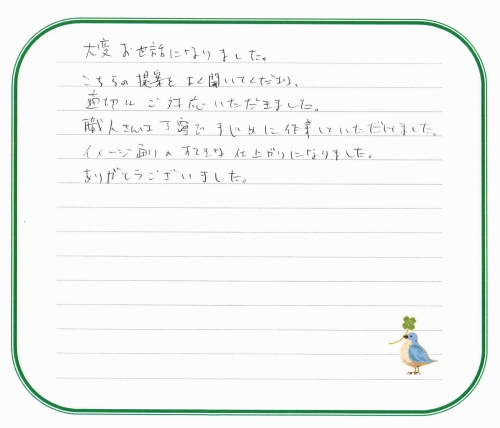 大変お世話になりました。
こちらの提案をよく聞いてくださり、
適切にご対応いただきました。
職人さんは丁寧でまじめに作業していただけました。
イメージ通りのすてきな仕上がりになりました。
ありがとうございました。